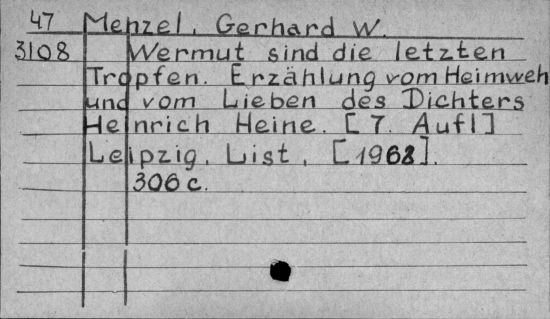 47 Menzel, Gerhard W.
3108 Wermut sind die letzten
Tropfen. Erzählung vom Heimweh
und vom Lieben des Dichters
Heinrich Heine. [7. Aufl]
Leipzig, List, [1968].
306 c.